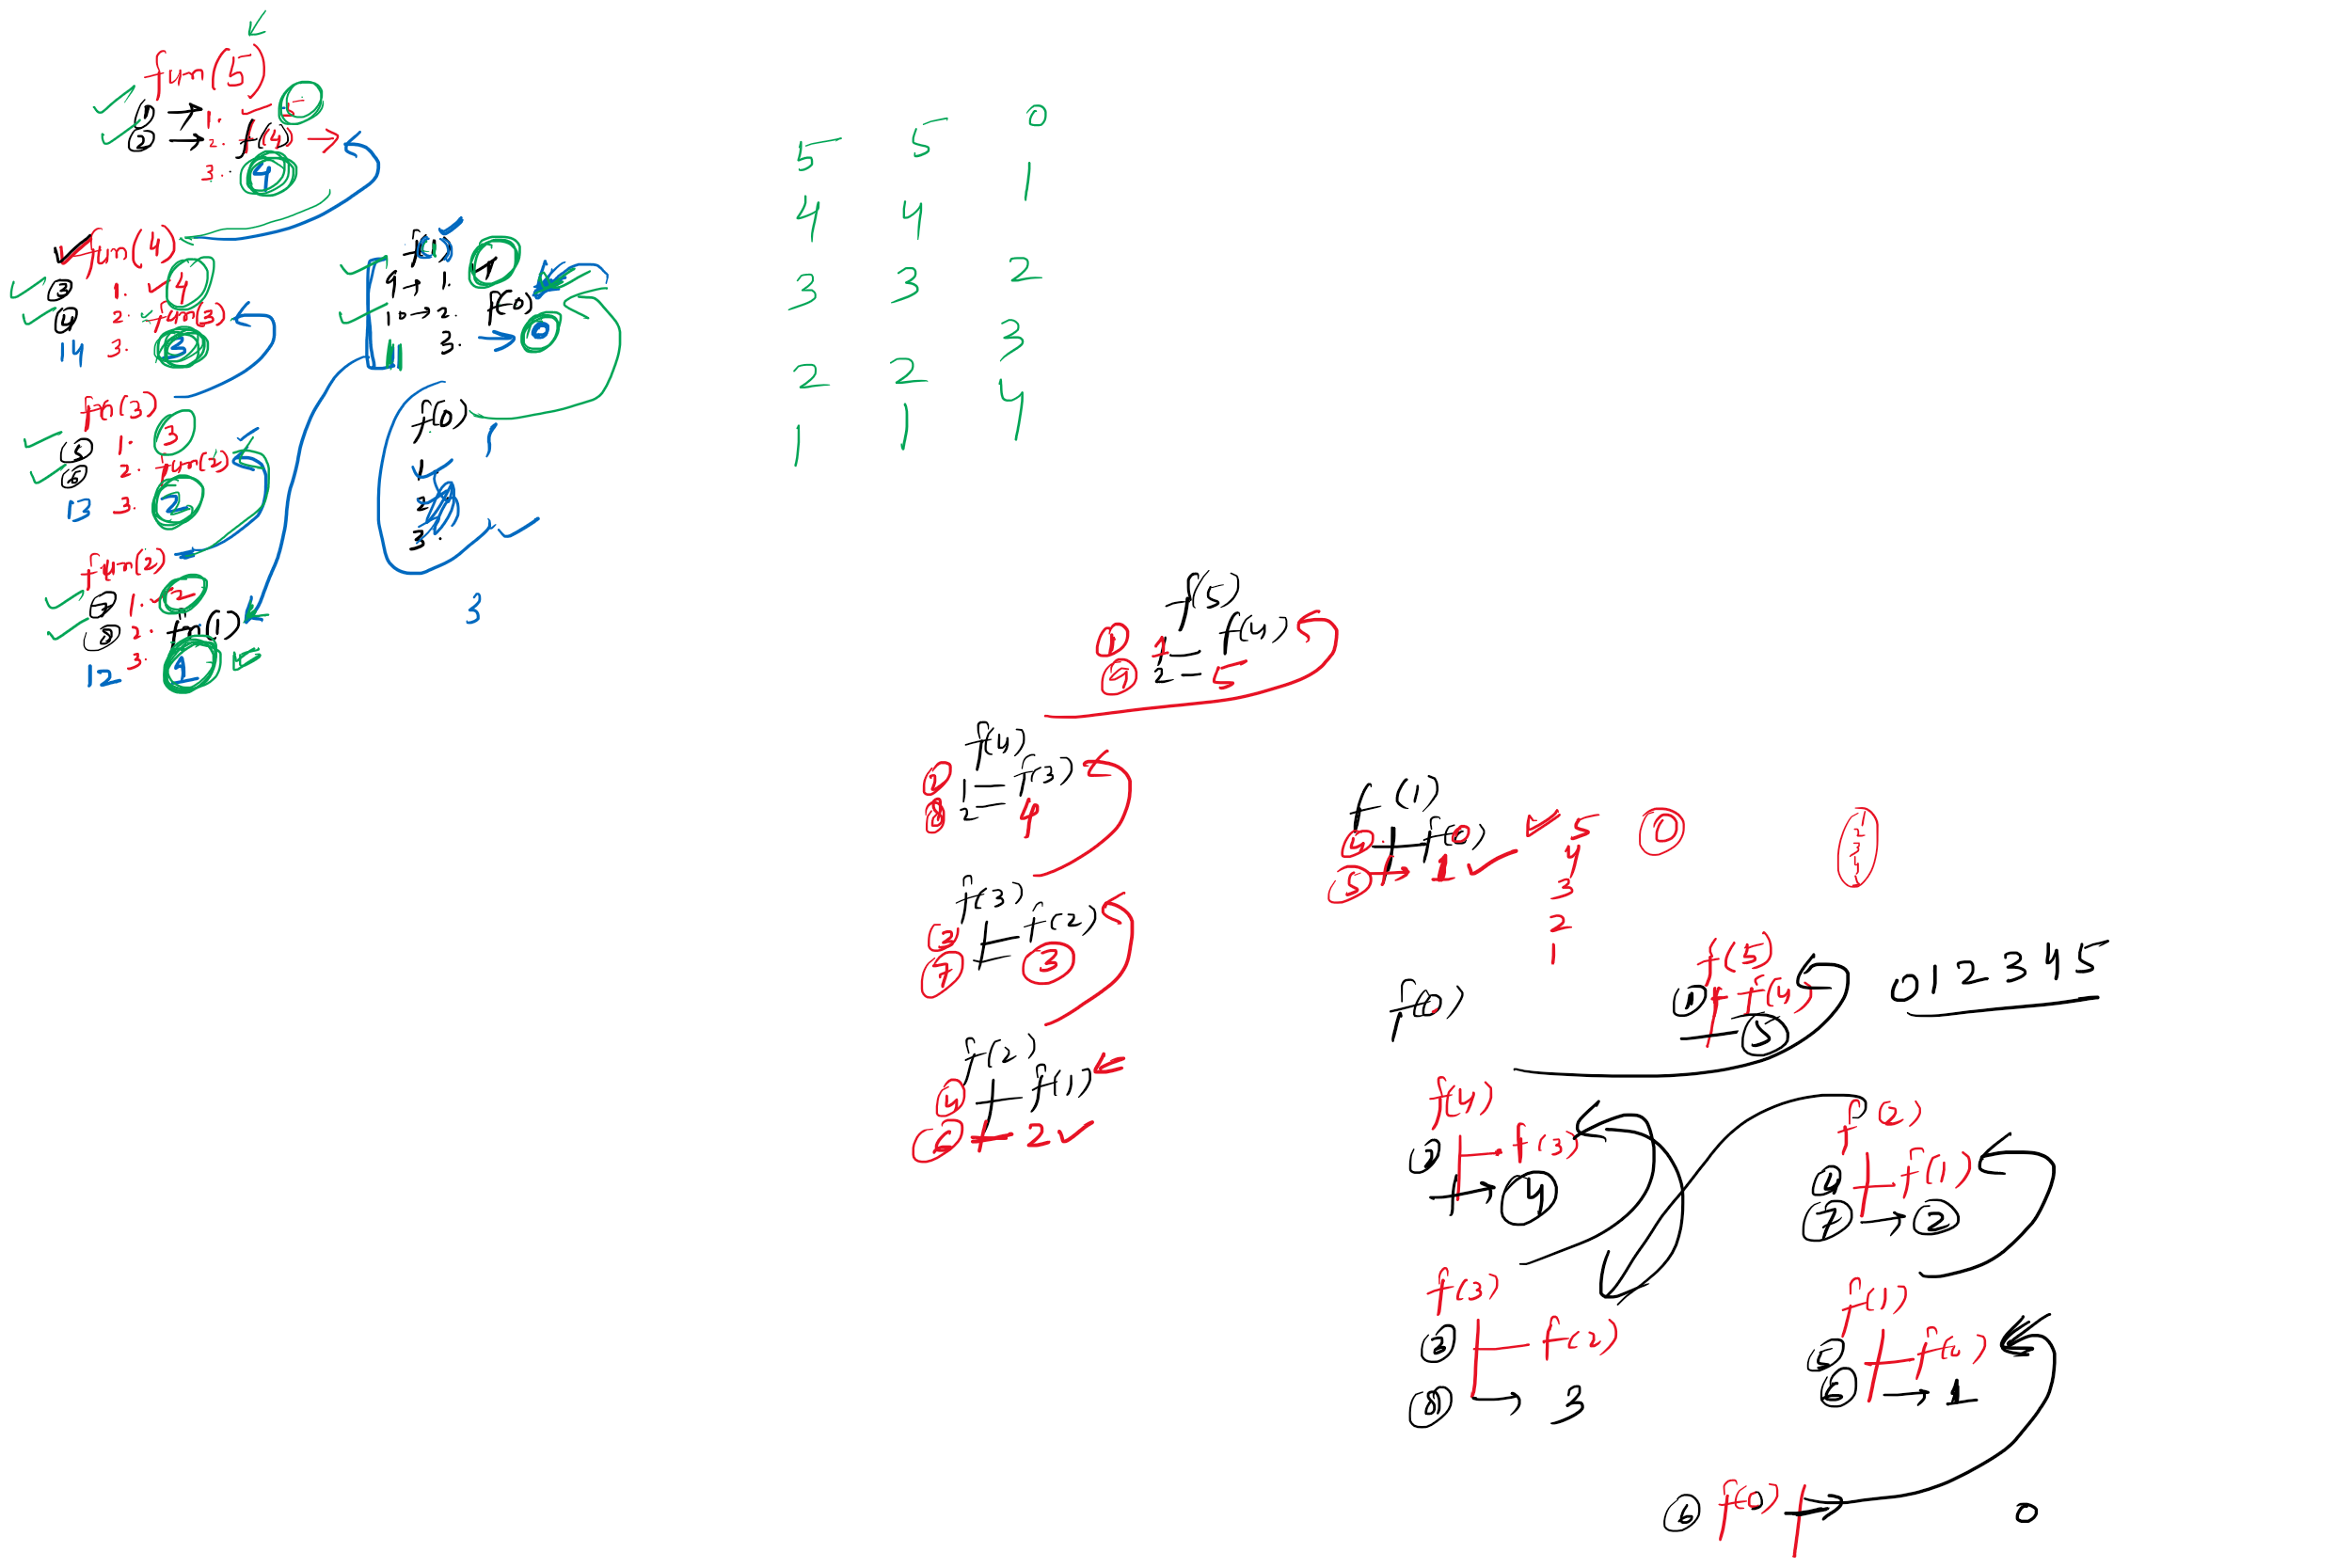 fun(5)
① → 1. 5
② → 2. f(4) →
3. 4
fun(4)
③ 1. 4
④ 2. fun(3)
14 3. 3
fn(3)
⑤ 1. 3
⑥ 2. fun(2)
13 3. 2
fun(2)
⑦ 1. 2
⑧ 2. fn(1)
12 3. 1
f(1)
9 → 1. 1
10 → 2. f(0)
11 3. → 0
f(0)
1.
2
3.
3
5 5 0
4 4 1
3 3 2
2 2 3
1 1 4
f(5)
① 1 — f(4)
⑨ 2 — 5
f(4)
② 1 — f(3)
⑧ 2 — 4
f(3)
③ f(2)
⑦ 3
f(2)
④ f(1)
⑥ 2
f(1)
f(0)
⑤ → 1
5
4
3
2
1
0
f(0)
f(5)
① f(4)
5
0 1 2 3 4 5
f(4)
② f(3)
→ 4
f(3)
③ f(2)
⑧ → 3
f(2)
④ f(1)
⑦ → 2
f(1)
⑤ f(0)
⑥ → 1
⑥ f(0) →
0